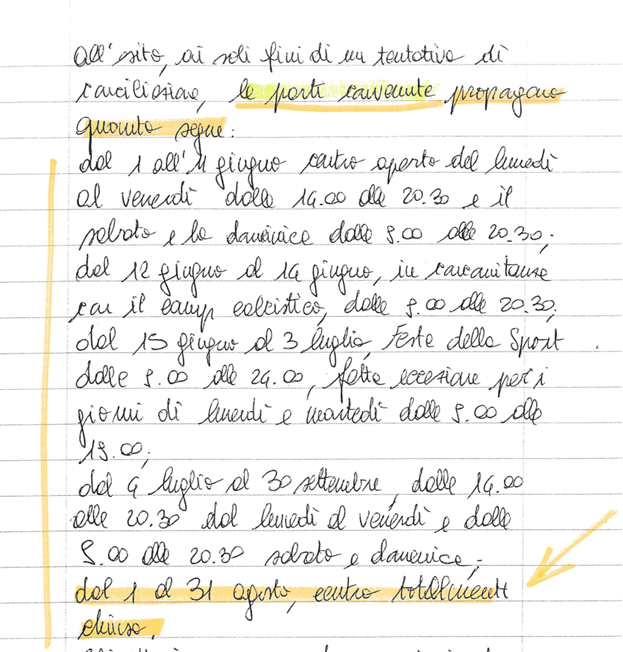 all'esito, ai soli fini di un tentativo di
conciliazione, le parti convenute propongono
quanto segue:
dal 1 all'11 giugno centro aperto dal lunedì
al venerdì dalle 14.00 alle 20.30 e il
sabato e la domenica dalle 9.00 alle 20.30;
dal 12 giugno al 14 giugno, in concomitanza
con il camp calcistico, dalle 9.00 alle 20.30;
dal 15 giugno al 3 luglio, Festa dello Sport
dalle 9.00 alle 24.00, fatta eccezione per i
giorni di lunedì e martedì dalle 9.00 alle
19.00;
dal 4 luglio al 30 settembre, dalle 14.00
alle 20.30 dal lunedì al venerdì e dalle
9.00 alle 20.30 sabato e domenica;
dal 1 al 31 agosto, centro totalmente
chiuso.